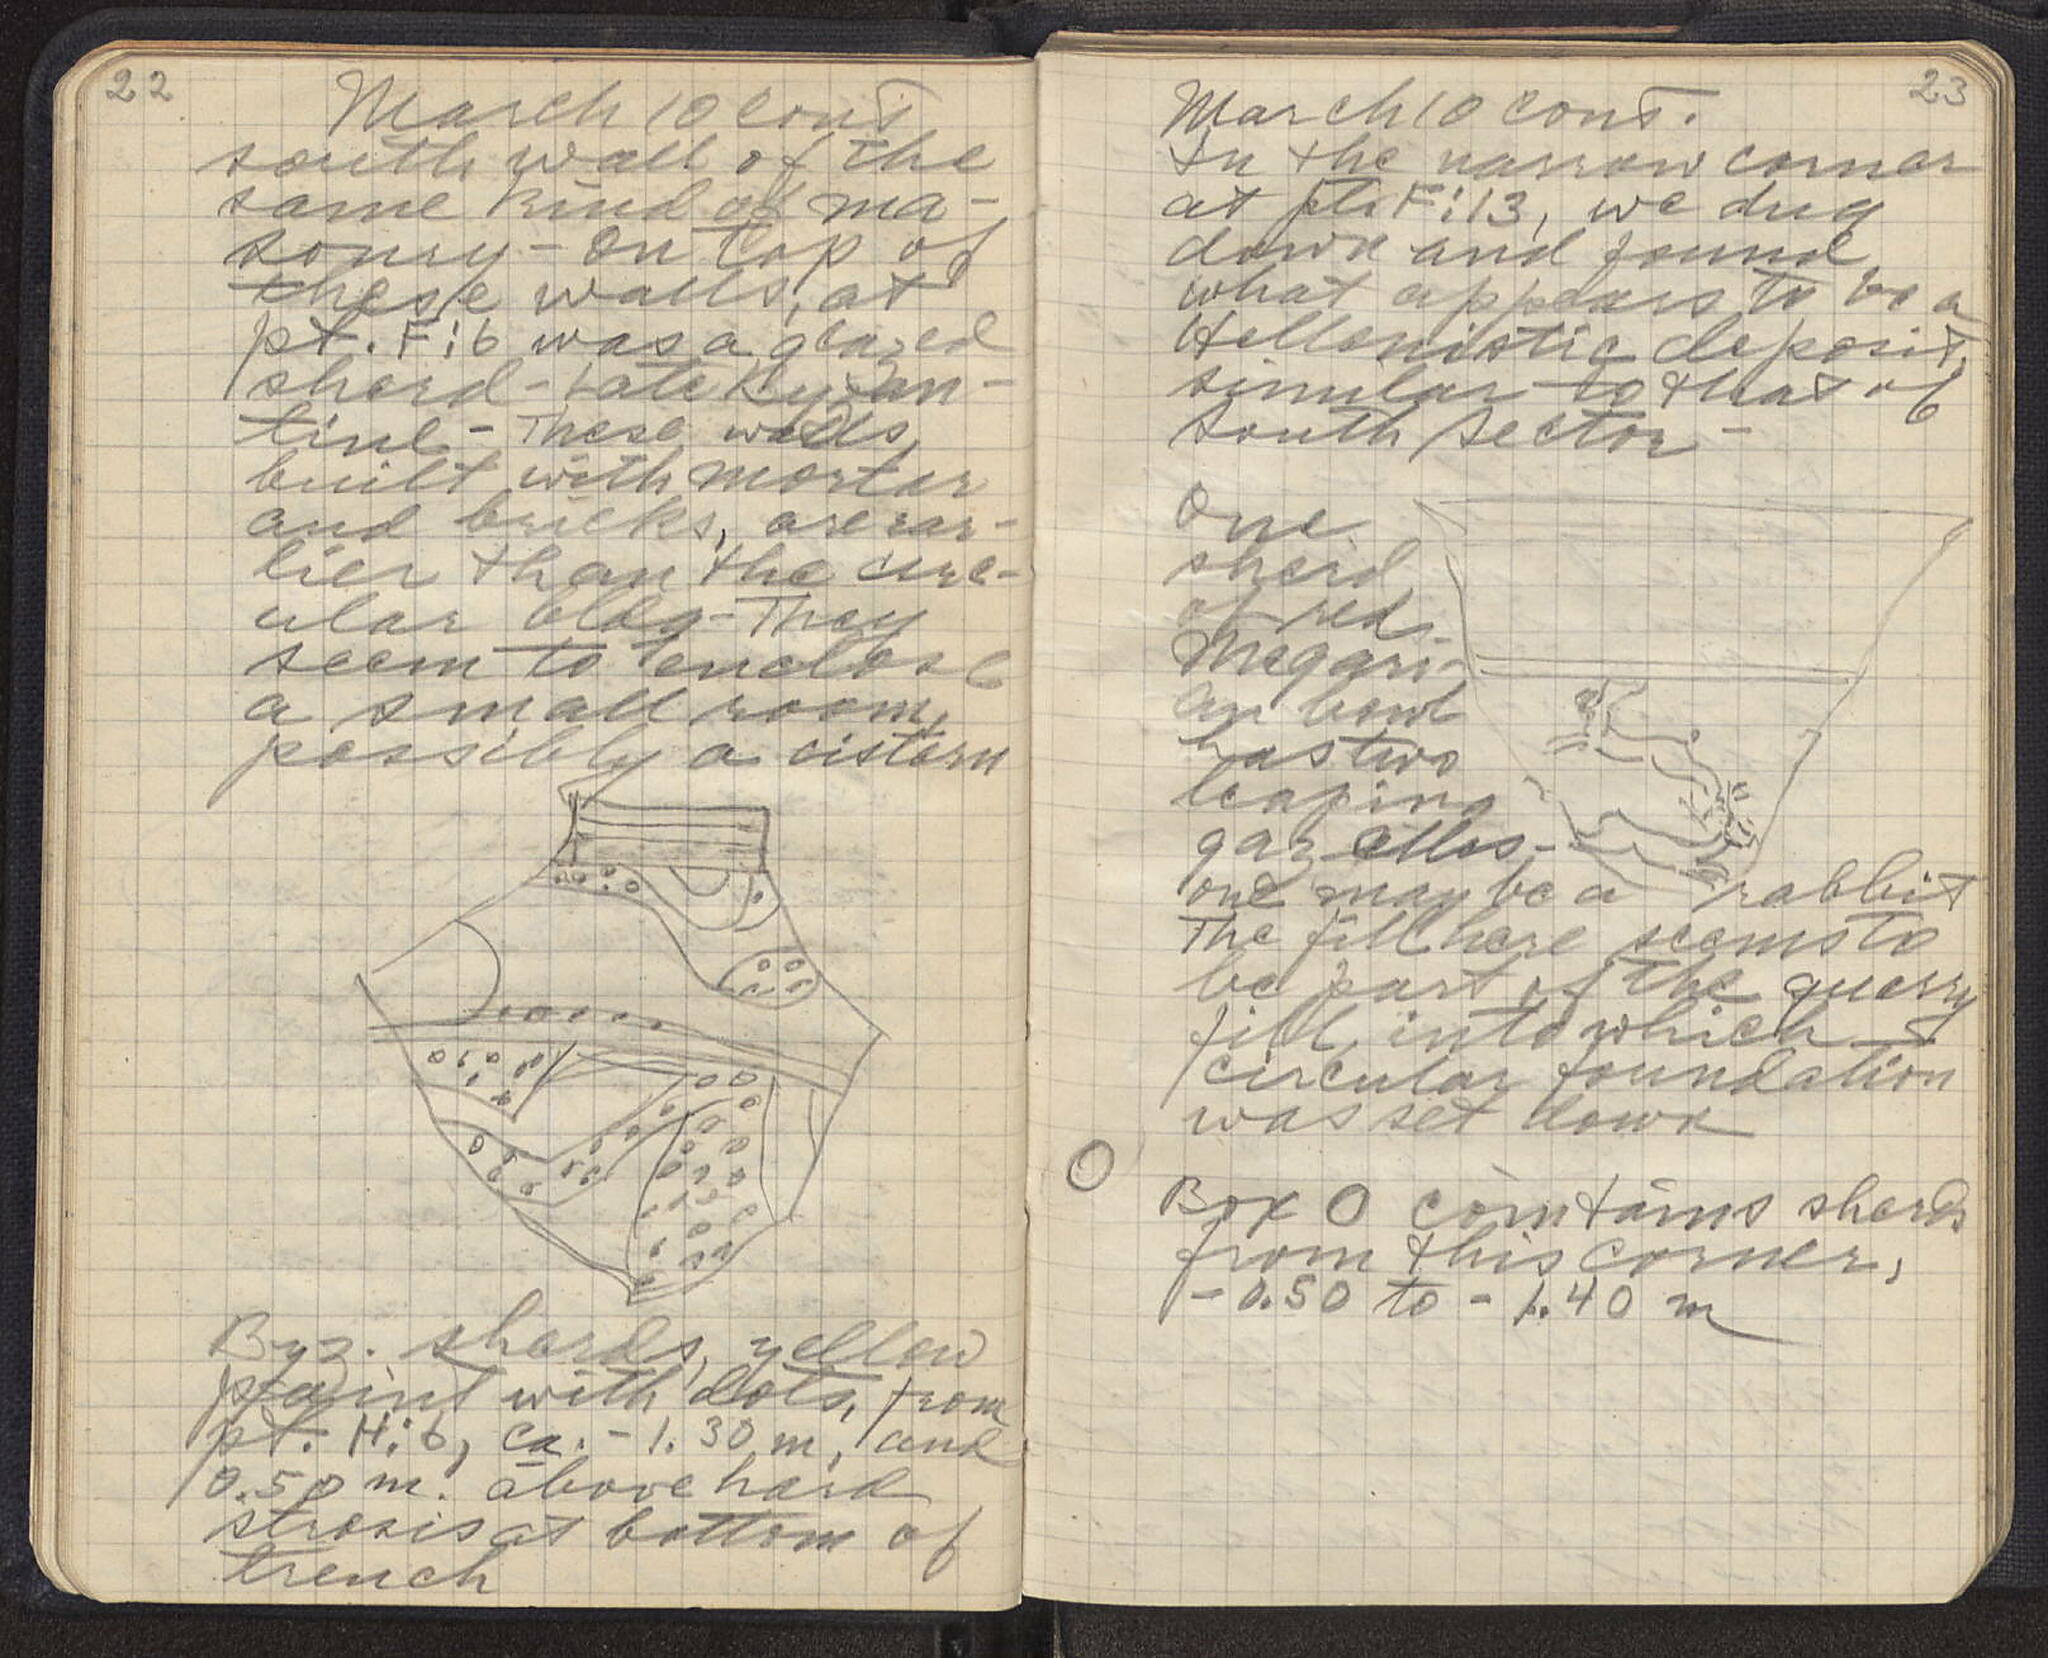 22
March 10 cont
south wall of the
same kind of ma-
sonry - on top of
these walls, at
pt. F:6 was a glazed
sherd - Late Byzan-
tine - These walls,
built with mortar
and bricks, are ear-
lier than the circ-
ular bldg - They
seem to enclose
a small room,
possibly a cistern
Byz. sherds, yellow
paint with dots, from
pt. H:6, ca. -1.30 m, and
0.50 m. above hard
strosis at bottom of
trench
23
March 10 cont.
In the narrow corner
at pt. F:13, we dug
down and found
what appears to be a
Hellenistic deposit,
similar to that of
South Sector -
One
sherd
of red
Megari-
an bowl
has two
leaping
gazelles -
one may be a rabbit
The fill here seems to
be part of the querry
fill, into which
circular foundation
was set down
O
Box O comtains sherds
from this corner,
-0.50 to -1.40 m